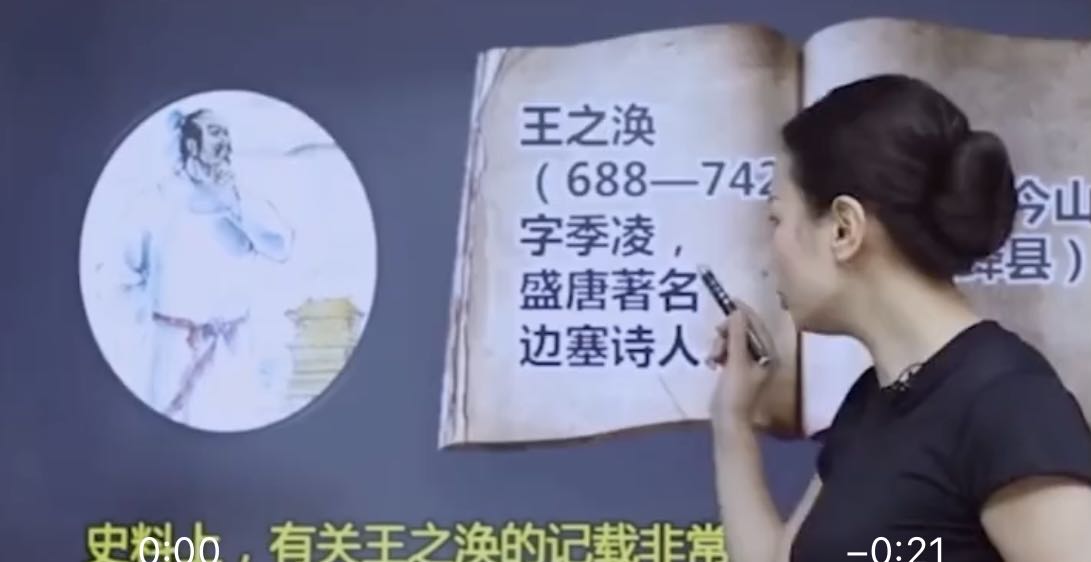 王之涣
（688—742
字季凌，
盛唐著名
边塞诗人
今山
绛县）
史料上，有关王之涣的记载非常
0:00
-0:21